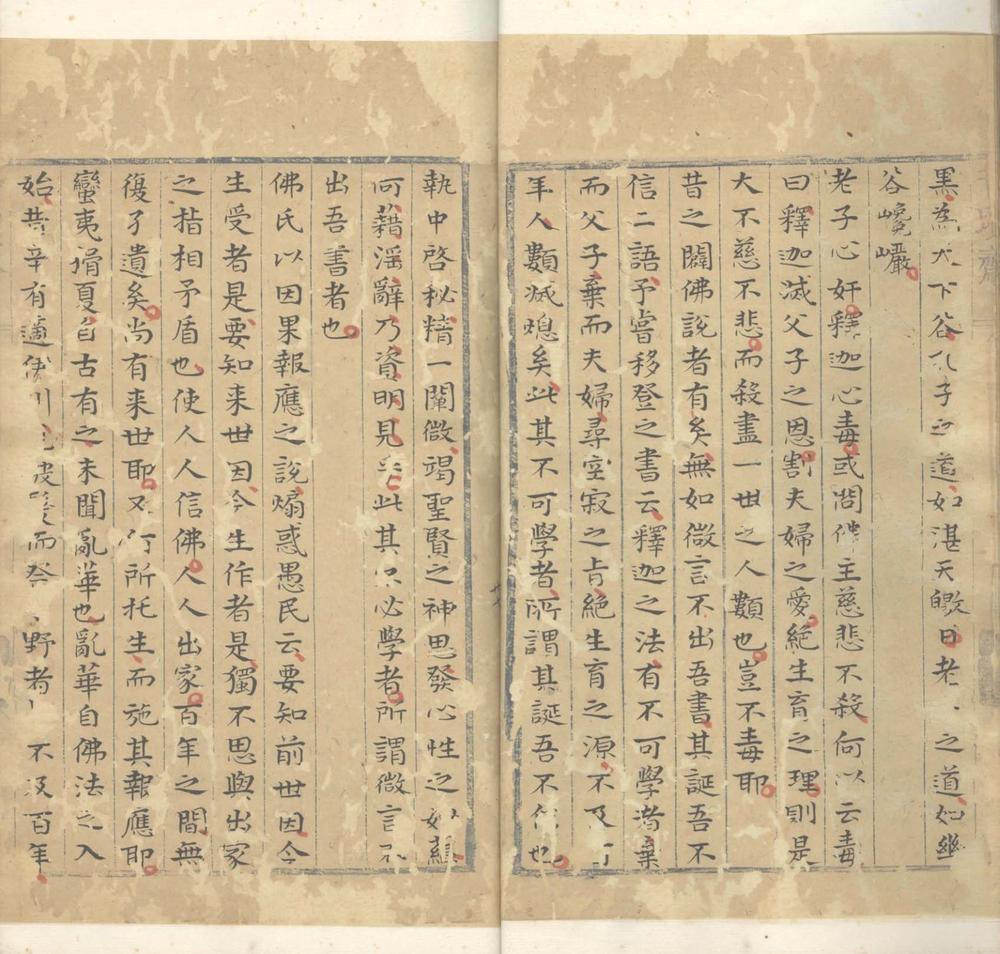 黑為大下谷孔子之道如湛天皦日老之道如幽
谷巉巖
老子心奸釋迦心毒或問佛主慈悲不殺何以云毒
曰釋迦滅父子之恩割夫婦之愛絕生育之理則是
大不慈不悲而殺盡一世之人類也豈不毒耶
昔之闢佛說者有矣無如微言不出吾書其誕吾不
信二語予嘗移登之書云釋迦之法有不可學者棄
而父子棄而夫婦尋空寂之旨絕生育之源不及百
年人類滅熄矣此其不可學者所謂其誕吾不信也
執中啓秘精一闡微竭聖賢之神思發心性之妙蘊
何藉滛辭乃資明見此其不必學者所謂微言不
出吾書者也
佛氏以因果報應之說煽惑愚民云要知前世因今
生受者是要知來世因今生作者是獨不思與出家
之指相矛盾也使人人信佛人人出家百年之間無
復孑遺矣尚有来世耶又何所托生而施其報應耶
蠻夷猾夏自古有之未聞亂華也亂華自佛法之入
始昔辛有適伊川見被髮而祭野者不及百年